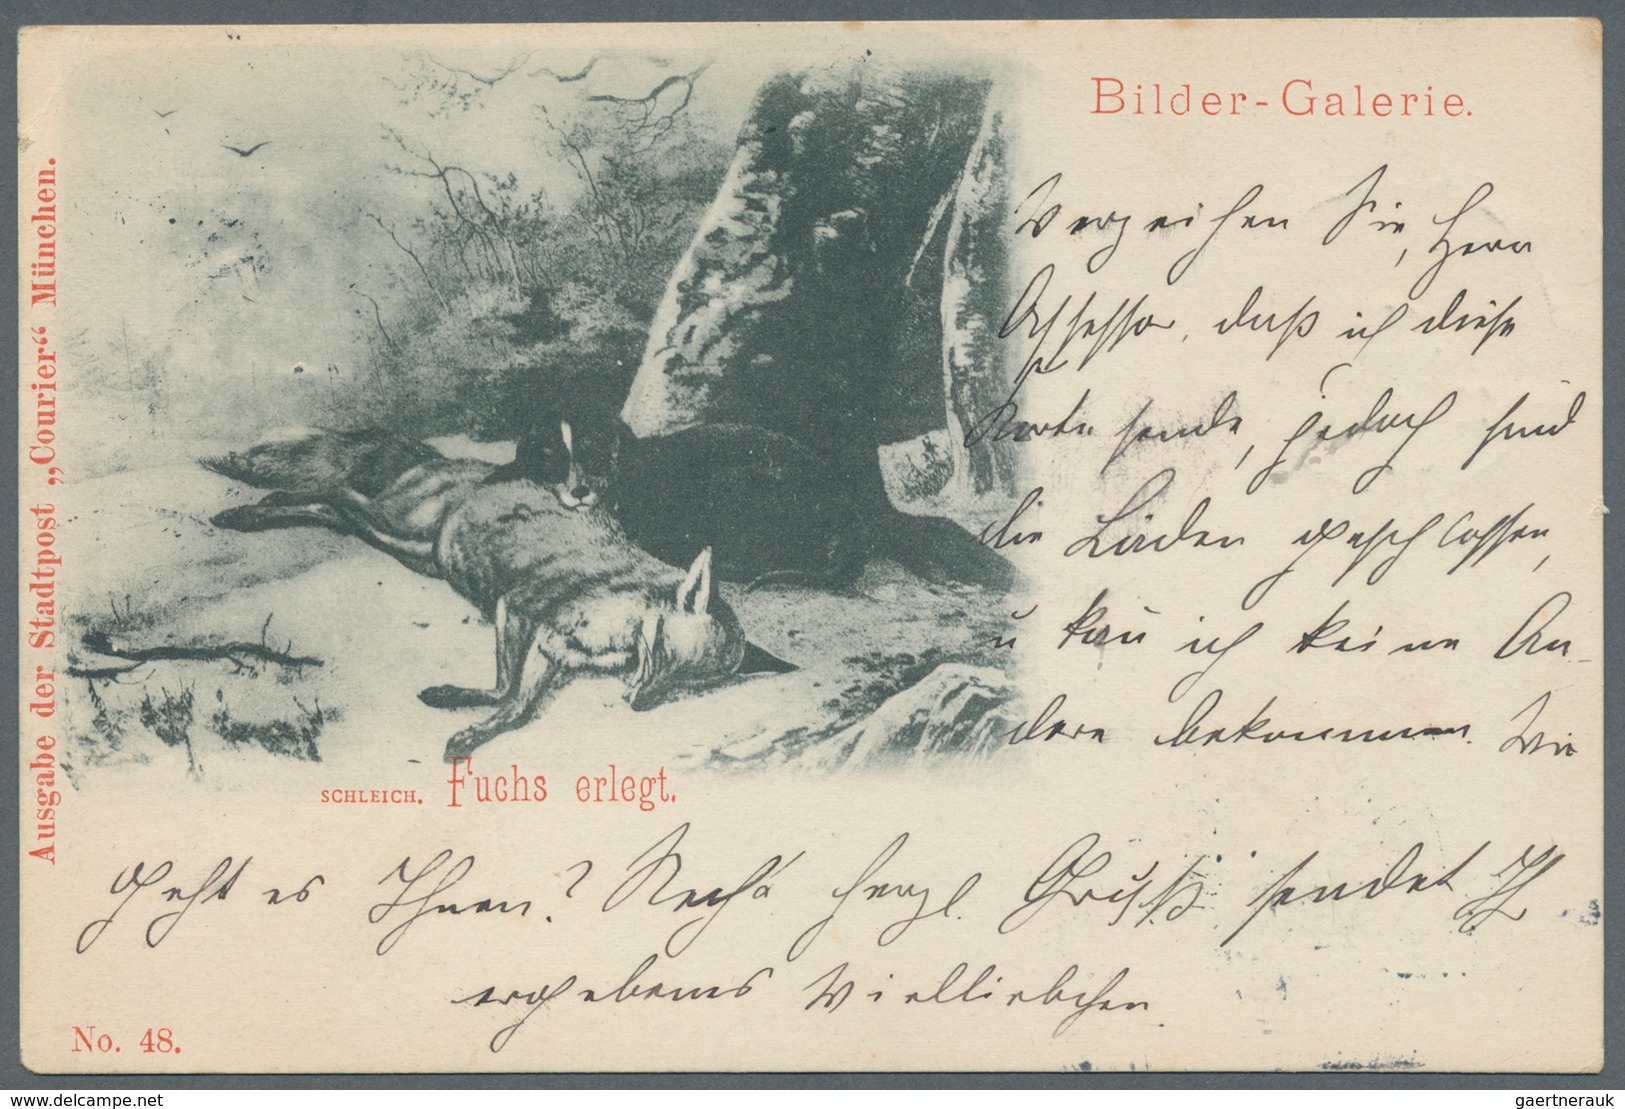 Bilder-Galerie.
Ausgabe der Stadtpost „Courier“ München.
Verzeihen Sie, Herr
Assessor, daß ich diese
Karte sende, jedoch sind
die Läden geschlossen,
u kan̄ ich keine An-
dere bekommen. Wie
SCHLEICH. Fuchs erlegt.
geht es Ihnen? Recht herzl. Gruß sendet Ihr
ergebenes Vielliebchen.
No. 48.
delcampe.net
gaertnerauk